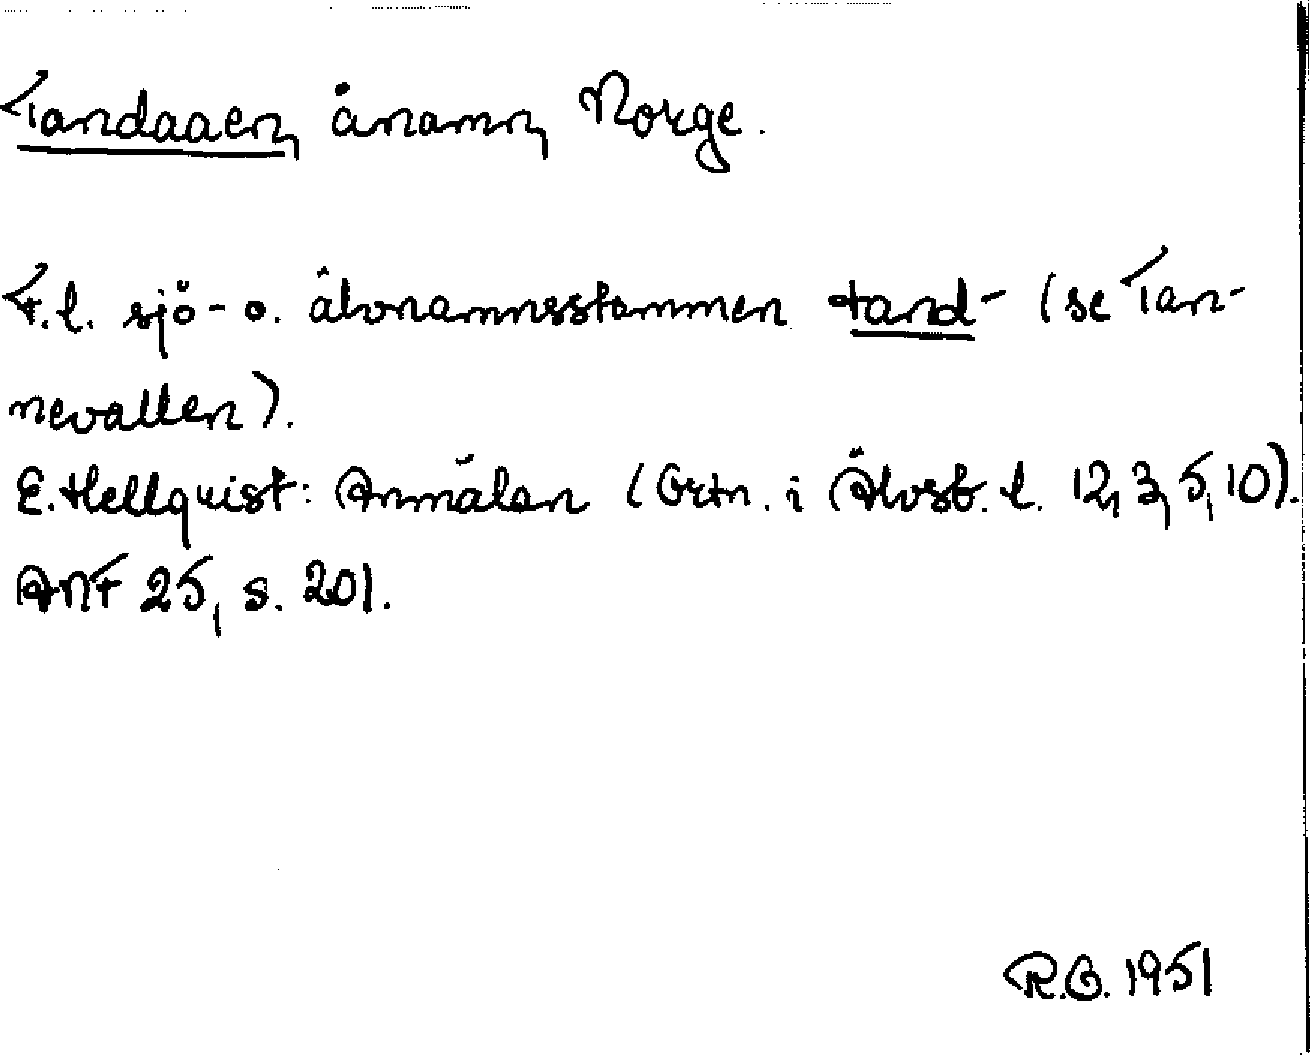 Tandaaen, ånamn, Norge.
T. l. sjö- o. älvnamnsstammen tand- (se Tan-
nevallen).
E. Hellquist: Anmälan (Ortn. i Älvsb. l. 12, 3, 5, 10).
ANF 25, s. 201.
R.O. 1951